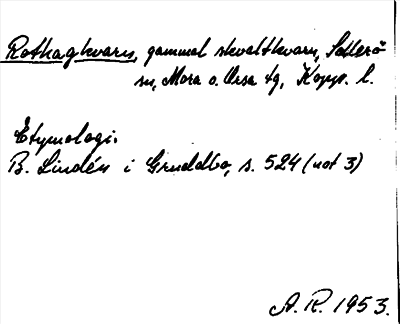 Rothagkvarn, gammal skvaltkvarn, Sollerö
sn, Mora o. Orsa tg, Kopp. l.
Etymologi.
B. Lindén i Gruddbo, s. 524 (not 3)
A. R. 1953.